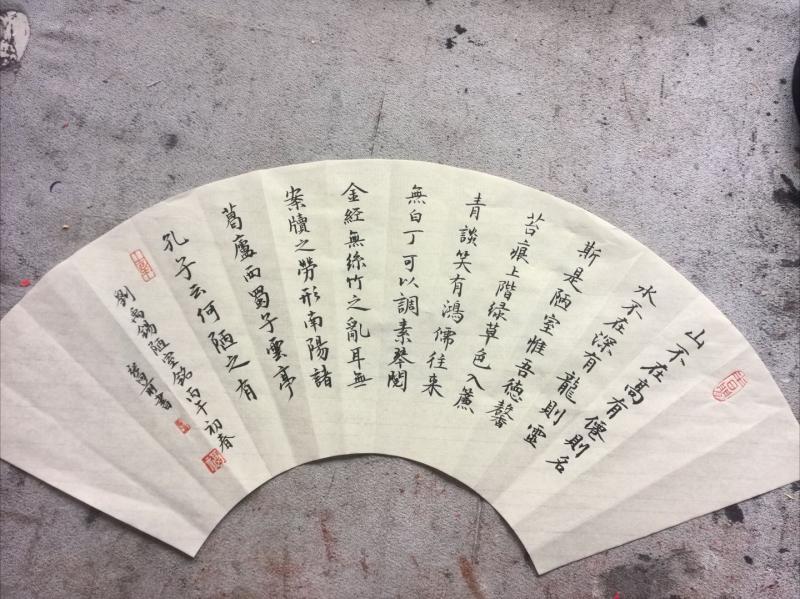 山不在高有僊則名
水不在深有龍則靈
斯是陋室惟吾德馨
苔痕上階緑草色入簾
青談笑有鴻儒往来
無白丁可以調素琴閲
金经無絲竹之亂耳無
案牘之勞形南陽諸
葛廬西蜀子雲亭
孔子云何陋之有
劉禹锡陋室銘丙午初春
書